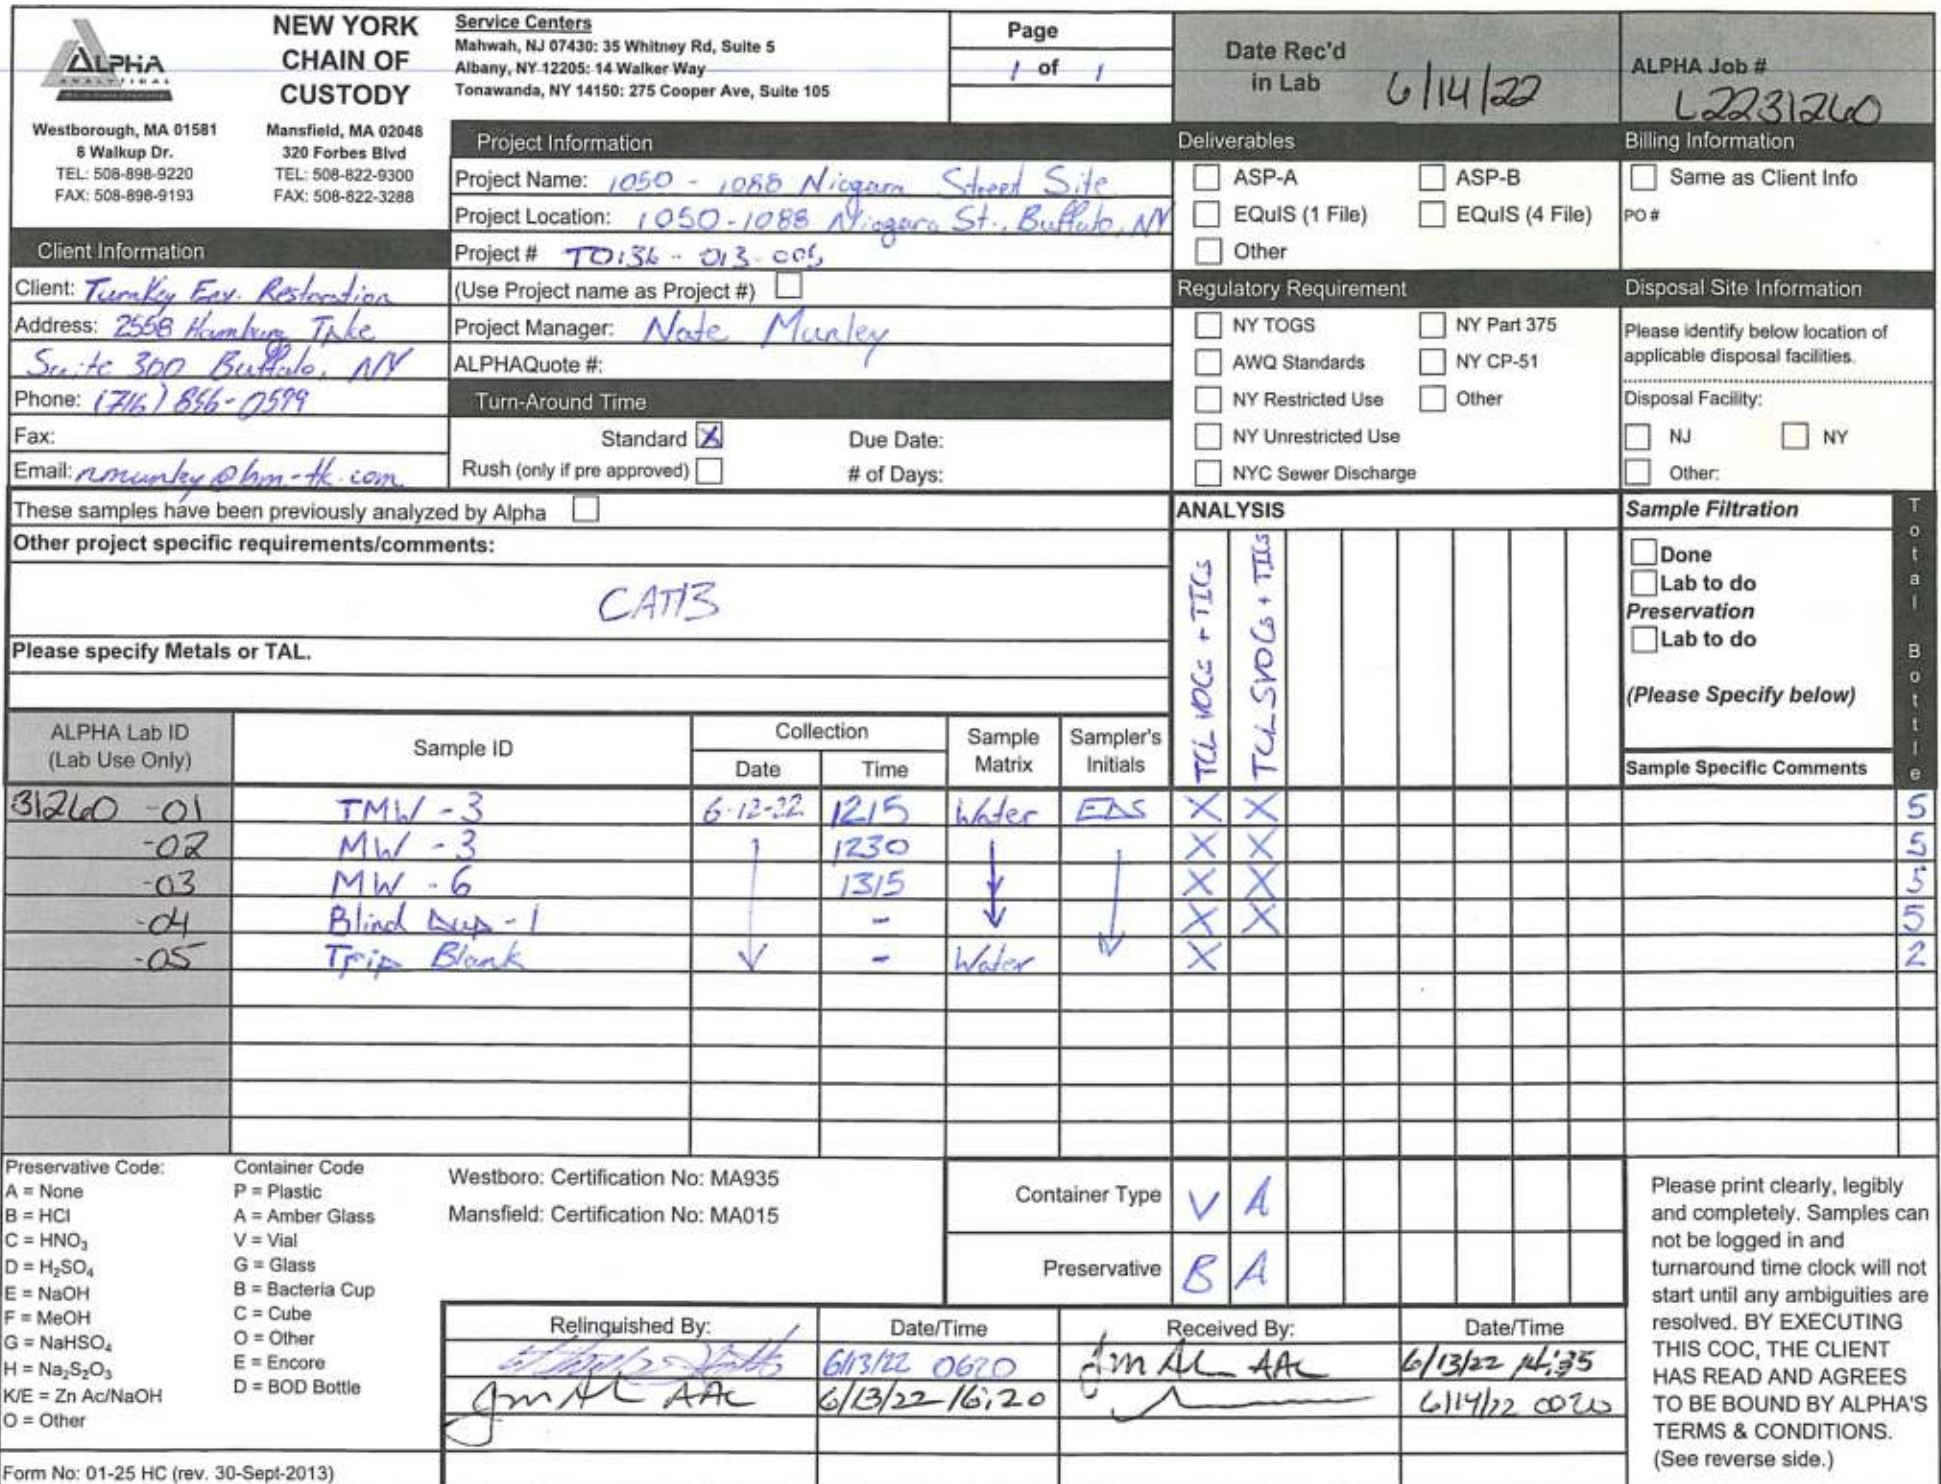 ALPHA
ANALYTICAL
NEW YORK
CHAIN OF
CUSTODY
Westborough, MA 01581
8 Walkup Dr.
TEL: 508-898-9220
FAX: 508-898-9193
Mansfield, MA 02048
320 Forbes Blvd
TEL: 508-822-9300
FAX: 508-822-3288
Service Centers
Mahwah, NJ 07430: 35 Whitney Rd, Suite 5
Albany, NY 12205: 14 Walker Way
Tonawanda, NY 14150: 275 Cooper Ave, Suite 105
Page
1 of 1
Date Rec'd
in Lab 6/14/22
ALPHA Job #
L2231260
Client Information
Client: TurnKey Env. Restoration
Address: 2558 Hamburg Tnke
Suite 300 Buffalo, NY
Phone: (716) 856-0599
Fax:
Email: nmunley@bm-tk.com
Project Information
Project Name: 1050 - 1088 Niagara Street Site
Project Location: 1050-1088 Niagara St., Buffalo, NY
Project # T0136-013-005
(Use Project name as Project #)
Project Manager: Nate Munley
ALPHAQuote #:
Turn-Around Time
Standard X Due Date:
Rush (only if pre approved) # of Days:
Deliverables
ASP-A ASP-B
EQuIS (1 File) EQuIS (4 File)
Other
Regulatory Requirement
NY TOGS NY Part 375
AWQ Standards NY CP-51
NY Restricted Use Other
NY Unrestricted Use
NYC Sewer Discharge
Billing Information
Same as Client Info
PO #
Disposal Site Information
Please identify below location of
applicable disposal facilities.
Disposal Facility:
NJ NY
Other:
These samples have been previously analyzed by Alpha
Other project specific requirements/comments:
CAT B
Please specify Metals or TAL.
ANALYSIS
TCL VOCs + TICs
TCL SVOCs + TICs
Sample Filtration
Done
Lab to do
Preservation
Lab to do
(Please Specify below)
Total Bottle
ALPHA Lab ID
(Lab Use Only)
Sample ID
Collection
Date Time
Sample
Matrix
Sampler's
Initials
Sample Specific Comments
31260 -01 TMW-3 6-12-22 1215 Water EDS X X 5
-02 MW-3 1230 X X 5
-03 MW-6 1315 X X 5
-04 Blind Dup-1 - X X 5
-05 Trip Blank - Water X 2
Preservative Code:
A = None
B = HCl
C = HNO₃
D = H₂SO₄
E = NaOH
F = MeOH
G = NaHSO₄
H = Na₂S₂O₃
K/E = Zn Ac/NaOH
O = Other
Container Code
P = Plastic
A = Amber Glass
V = Vial
G = Glass
B = Bacteria Cup
C = Cube
O = Other
E = Encore
D = BOD Bottle
Westboro: Certification No: MA935
Mansfield: Certification No: MA015
Container Type V A
Preservative B A
Relinquished By: Date/Time Received By: Date/Time
6/13/22 0620 AAC 6/13/22 14:35
AAC 6/13/22 16:20 6/14/22 0020
Please print clearly, legibly
and completely. Samples can
not be logged in and
turnaround time clock will not
start until any ambiguities are
resolved. BY EXECUTING
THIS COC, THE CLIENT
HAS READ AND AGREES
TO BE BOUND BY ALPHA'S
TERMS & CONDITIONS.
(See reverse side.)
Form No: 01-25 HC (rev. 30-Sept-2013)